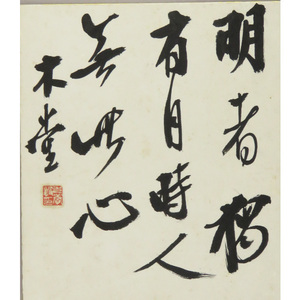 明者獨
有目時人
無此心
木堂